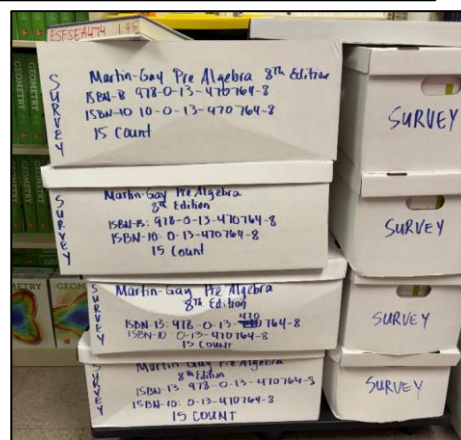 ESFSEA474 1 45
SURVEY
Martin-Gay Pre Algebra 8th Edition
ISBN-B 978-0-13-470764-8
ISBN-10 10-0-13-470764-8
15 Count
SURVEY
SURVEY
Martin-Gay Pre Algebra
8th Edition
ISBN-13: 978-0-13-470764-8
ISBN-10: 0-13-470764-8
15 Count
SURVEY
SURVEY
Martin-Gay Pre Algebra
8th Edition
ISBN-13: 978-0-13-470 764-8
ISBN-10: 0-13-470764-8
15 COUNT
SURVEY
SURVEY
Martin Gay Pre Algebra
8th Edition
ISBN-13: 978-0-13-470764-8
ISBN-10: 0-13-470764-8
15 COUNT
SURVEY
GEOMETRY
GEOMETRY
GEOM